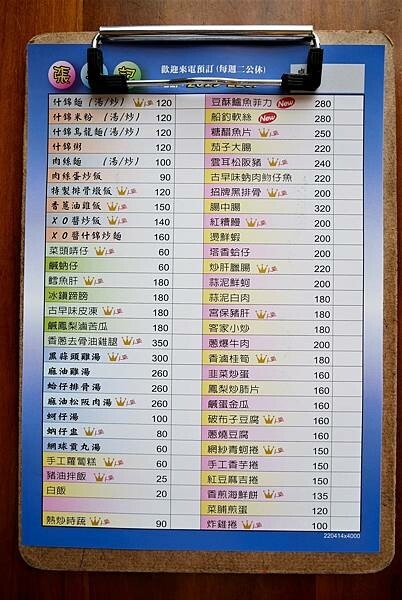 張 記
歡迎來電預訂(每週二公休)
什錦麵 (湯/炒) 120
什錦米粉 (湯/炒) 120
什錦烏龍麵(湯/炒) 120
什錦粥 120
肉絲麵 (湯/炒) 100
肉絲蛋炒飯 90
特製排骨燉飯 120
香蔥油雞飯 150
XO醬炒飯 140
XO醬什錦炒麵 160
菜頭嗬仔 60
鹹蚋仔 60
鱈魚肝 180
冰鎮蹄膀 180
古早味皮凍 180
鹹鳳梨滷苦瓜 180
香蔥去骨油雞腿 350
黑蒜頭雞湯 300
麻油雞湯 260
蛤仔排骨湯 260
麻油松阪肉湯 260
蚵仔湯 100
蚋仔盅 80
網球貢丸湯 60
手工蘿蔔糕 60
豬油拌飯 25
白飯 20
熱炒時蔬 90
豆酥鱸魚菲力 New 280
船釣軟絲 New 280
糖醋魚片 250
茄子大腸 220
雲耳松阪豬 240
古早味蚋肉魩仔魚 220
招牌黑排骨 200
腸中腸 320
紅糟鰻 200
燙鮮蝦 200
塔香蛤仔 200
炒肝腱腸 220
蒜泥鮮蚵 200
蒜泥白肉 180
宮保豬肝 180
客家小炒 180
蔥爆牛肉 200
香滷桂筍 180
韭菜炒蛋 160
鳳梨炒肺片 160
鹹蛋金瓜 160
破布子豆腐 160
蔥燒豆腐 160
網紗青蚵捲 150
手工香芋捲 150
紅豆麻吉捲 150
香煎海鮮餅 135
菜脯煎蛋 120
炸雞捲 100
220414x4000